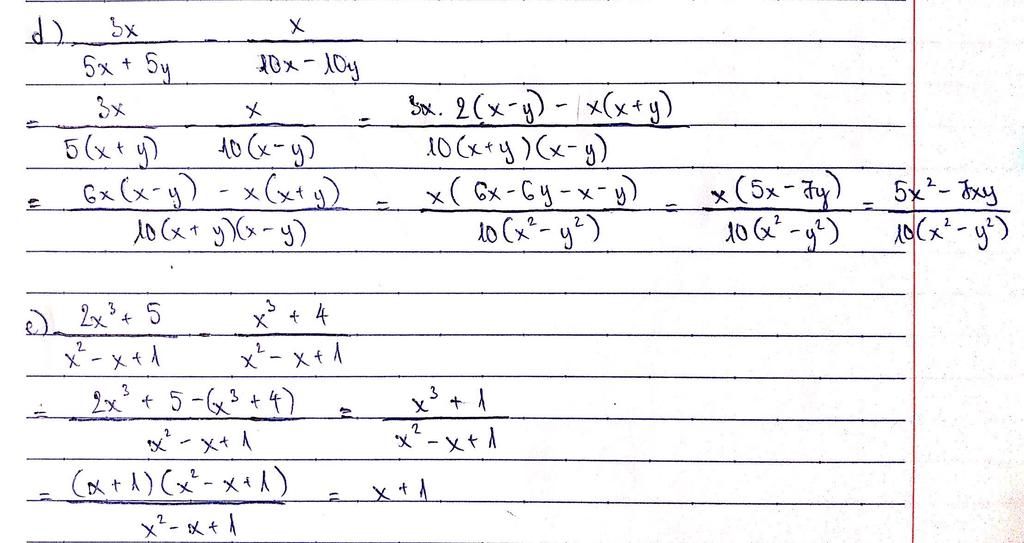 d) 3x/(5x + 5y) - x/(10x - 10y)
= 3x/(5(x + y)) - x/(10(x - y)) = (3x. 2(x - y) - x(x + y))/(10(x + y)(x - y))
= (6x(x - y) - x(x + y))/(10(x + y)(x - y)) = x(6x - 6y - x - y)/(10(x² - y²)) = x(5x - 7y)/(10(x² - y²)) = (5x² - 7xy)/(10(x² - y²))
e) (2x³ + 5)/(x² - x + 1) - (x³ + 4)/(x² - x + 1)
= (2x³ + 5 - (x³ + 4))/(x² - x + 1) = (x³ + 1)/(x² - x + 1)
= ((x + 1)(x² - x + 1))/(x² - x + 1) = x + 1